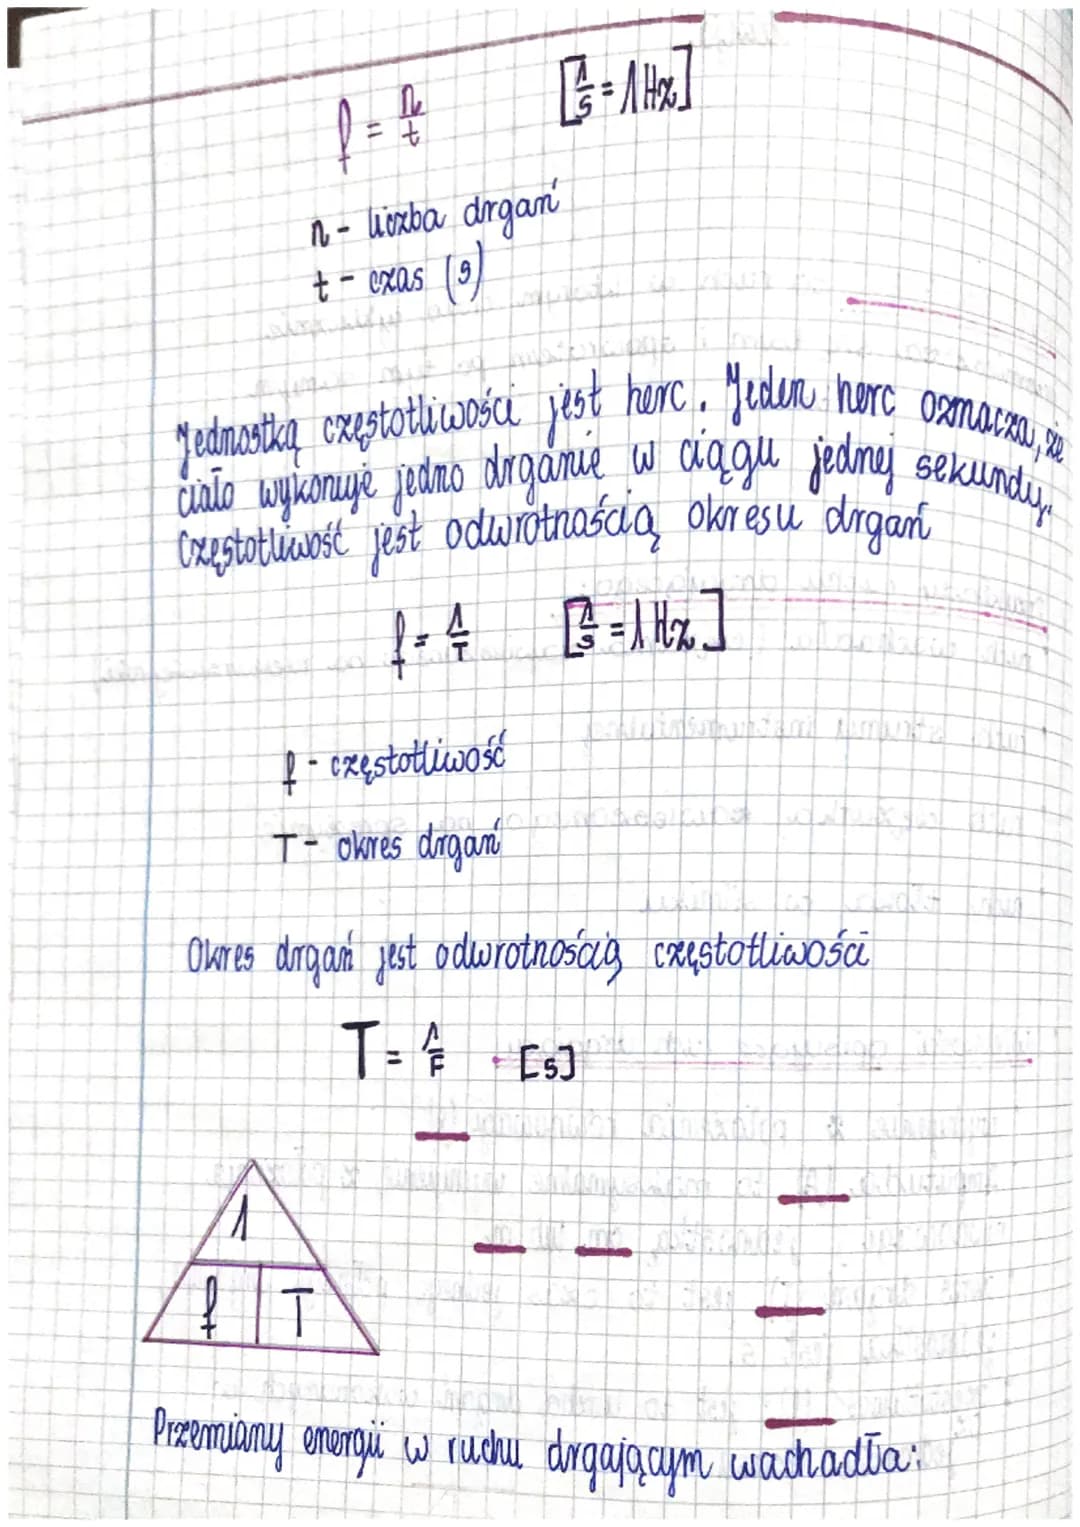 f = n/t [1/s = 1 Hz]
n - liczba drgań
t - czas (s)
Jednostką częstotliwości jest herc. Jeden herc oznacza, że
ciało wykonuje jedno drganie w ciągu jednej sekundy.
Częstotliwość jest odwrotnością okresu drgań
f = 1/T [1/s = 1 Hz]
f - częstotliwość
T - okres drgań
Okres drgań jest odwrotnością częstotliwości
T = 1/F [s]
1
f T
Przemiany energii w ruchu drgającym wachadła: